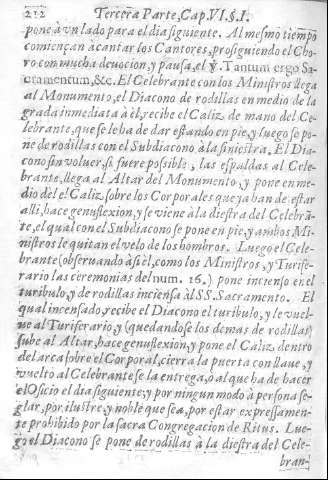 212 Tercera Parte, Cap. VI. §. I.
pone à vn lado para el dia siguiente. Al mesmo tiempo
comiençan à cantar los Cantores, prosiguiendo el Cho-
ro con mucha deuocion, y pausa, el ℣. Tantum ergo Sa-
cramentum, &c. El Celebrante con los Ministros llega
al Monumento, el Diacono de rodillas en medio de la
grada inmediata à èl, recibe el Caliz de mano del Ce-
lebrante, que se le ha de dar estando en pie, y luego se po-
ne de rodillas con el Subdiacono à la siniestra. El Dia-
cono sin voluer, si fuere possible, las espaldas al Cele-
brante, llega al Altar del Monumento, y pone en me-
dio del el Caliz, sobre los Corporales que ya han de estar
alli, hace genuflexion, y se viene à la diestra del Celebrã-
te, el qual con el Subdiacono se pone en pie, y ambos Mi-
nistros le quitan el velo de los hombros. Luego el Cele-
brante (obseruando àsi èl, como los Ministros, y Turife-
rario las ceremonias del num. 16.) pone incienso en el
turibulo, y de rodillas inciensa al SS. Sacramento. El
qual incensado, recibe el Diacono el turibulo, y le vuel-
ue al Turiferario, y (quedandose los demas de rodillas)
sube al Altar, hace genuflexion, y pone el Caliz dentro
del arca sobre el Corporal, cierra la puerta con llaue, y
vuelto al Celebrante se la entrega, ò al que ha de hacer
el Oficio el dia siguiente; y por ningun modo à persona se-
glar, por ilustre, y noble que sea, por estar expressamen-
te prohibido por la sacra Congregacion de Ritus. Lue-
go el Diacono se pone de rodillas à la diestra del Cele-
bran-